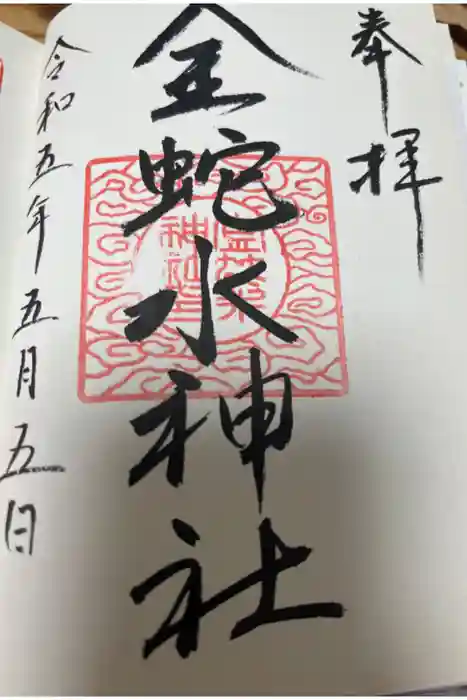 奉拝
金蛇水神社
令和五年五月五日